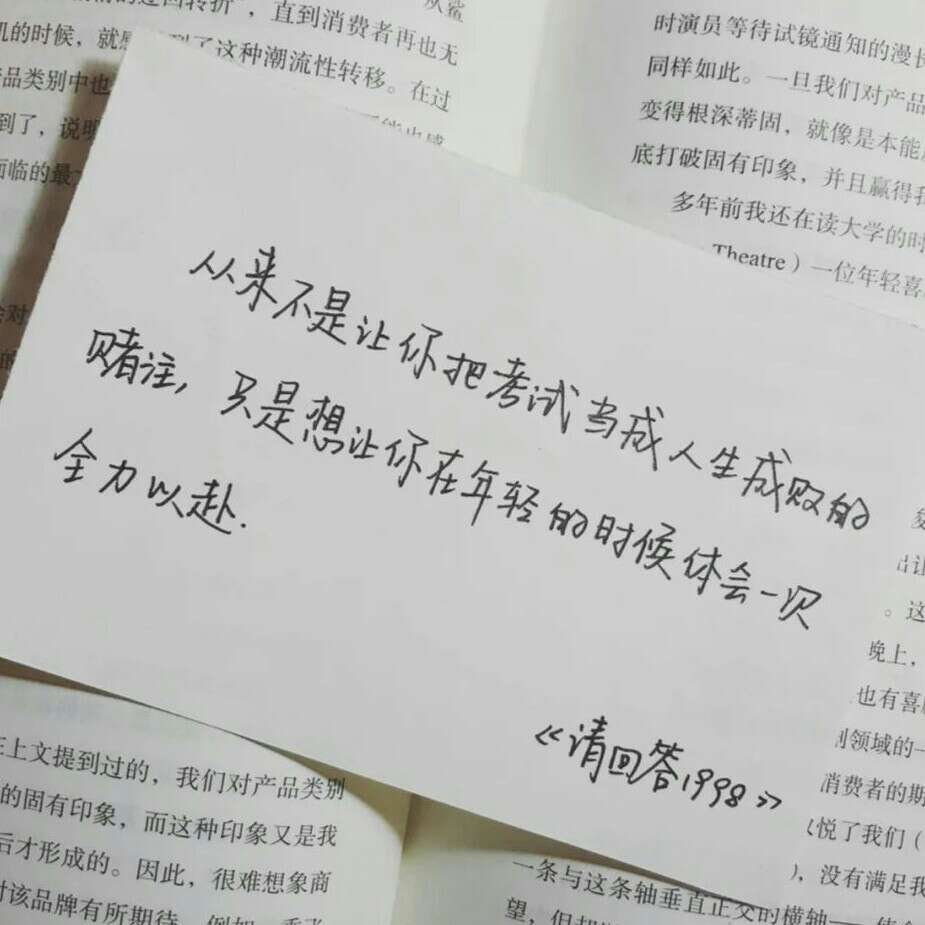 的迴回转折”，直到消费者再也无
机的时候，就感
到了这种潮流性转移。在过
品类别中也
到了，说明
面临的最
时演员等待试镜通知的漫长
同样如此。一旦我们对产品
变得根深蒂固，就像是本能
底打破固有印象，并且赢得我
多年前我还在读大学的时
Theatre）一位年轻喜
从来不是让你把考试当成人生成败的
赌注，只是想让你在年轻的时候体会一次
全力以赴.
《请回答1998》
出让
。这
晚上，
也有喜
领域的一
消费者的期
悦了我们（
），没有满足我
在上文提到过的，我们对产品类别
的固有印象，而这种印象又是我
后才形成的。因此，很难想象商
对该品牌有所期待。例如，
一条与这条轴垂直正交的横轴——
望，但